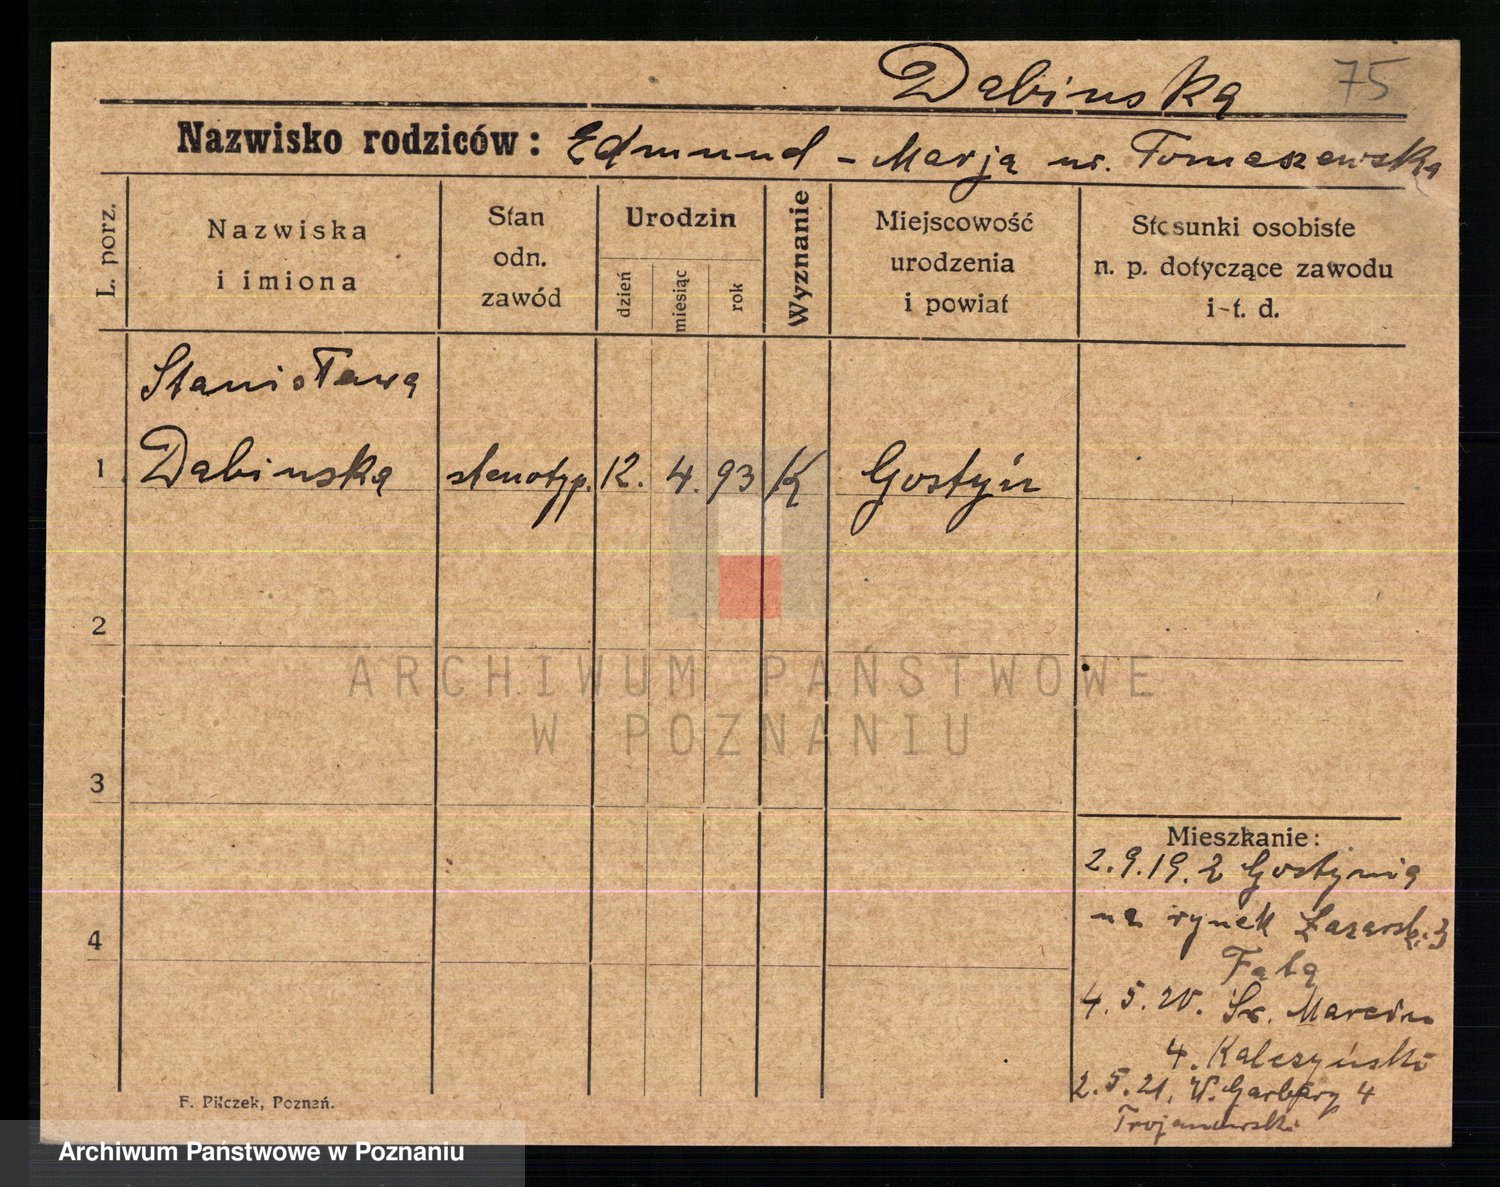 Dabinska 75
Nazwisko rodziców: Edmund - Marja ur. Tomaszewska
L. porz.
Nazwiska
i imiona
Stan
odn.
zawód
Urodzin
dzień
miesiąc
rok
Wyznanie
Miejscowość
urodzenia
i powiat
Stosunki osobiste
n. p. dotyczące zawodu
i t. d.
Stanisława
1 Dabinska stenotyp. 12. 4. 93 K Gostyń
2
3
4
ARCHIWUM PAŃSTWOWE
W POZNANIU
Mieszkanie:
2.9.19. z Gostynia
na rynek Łazarsk. 3
4.5.20. Św. Marcin
4. Kalczyński
2.5.21. W. Garbary 4
Trojanowski
F. Pilczek, Poznań.
Archiwum Państwowe w Poznaniu